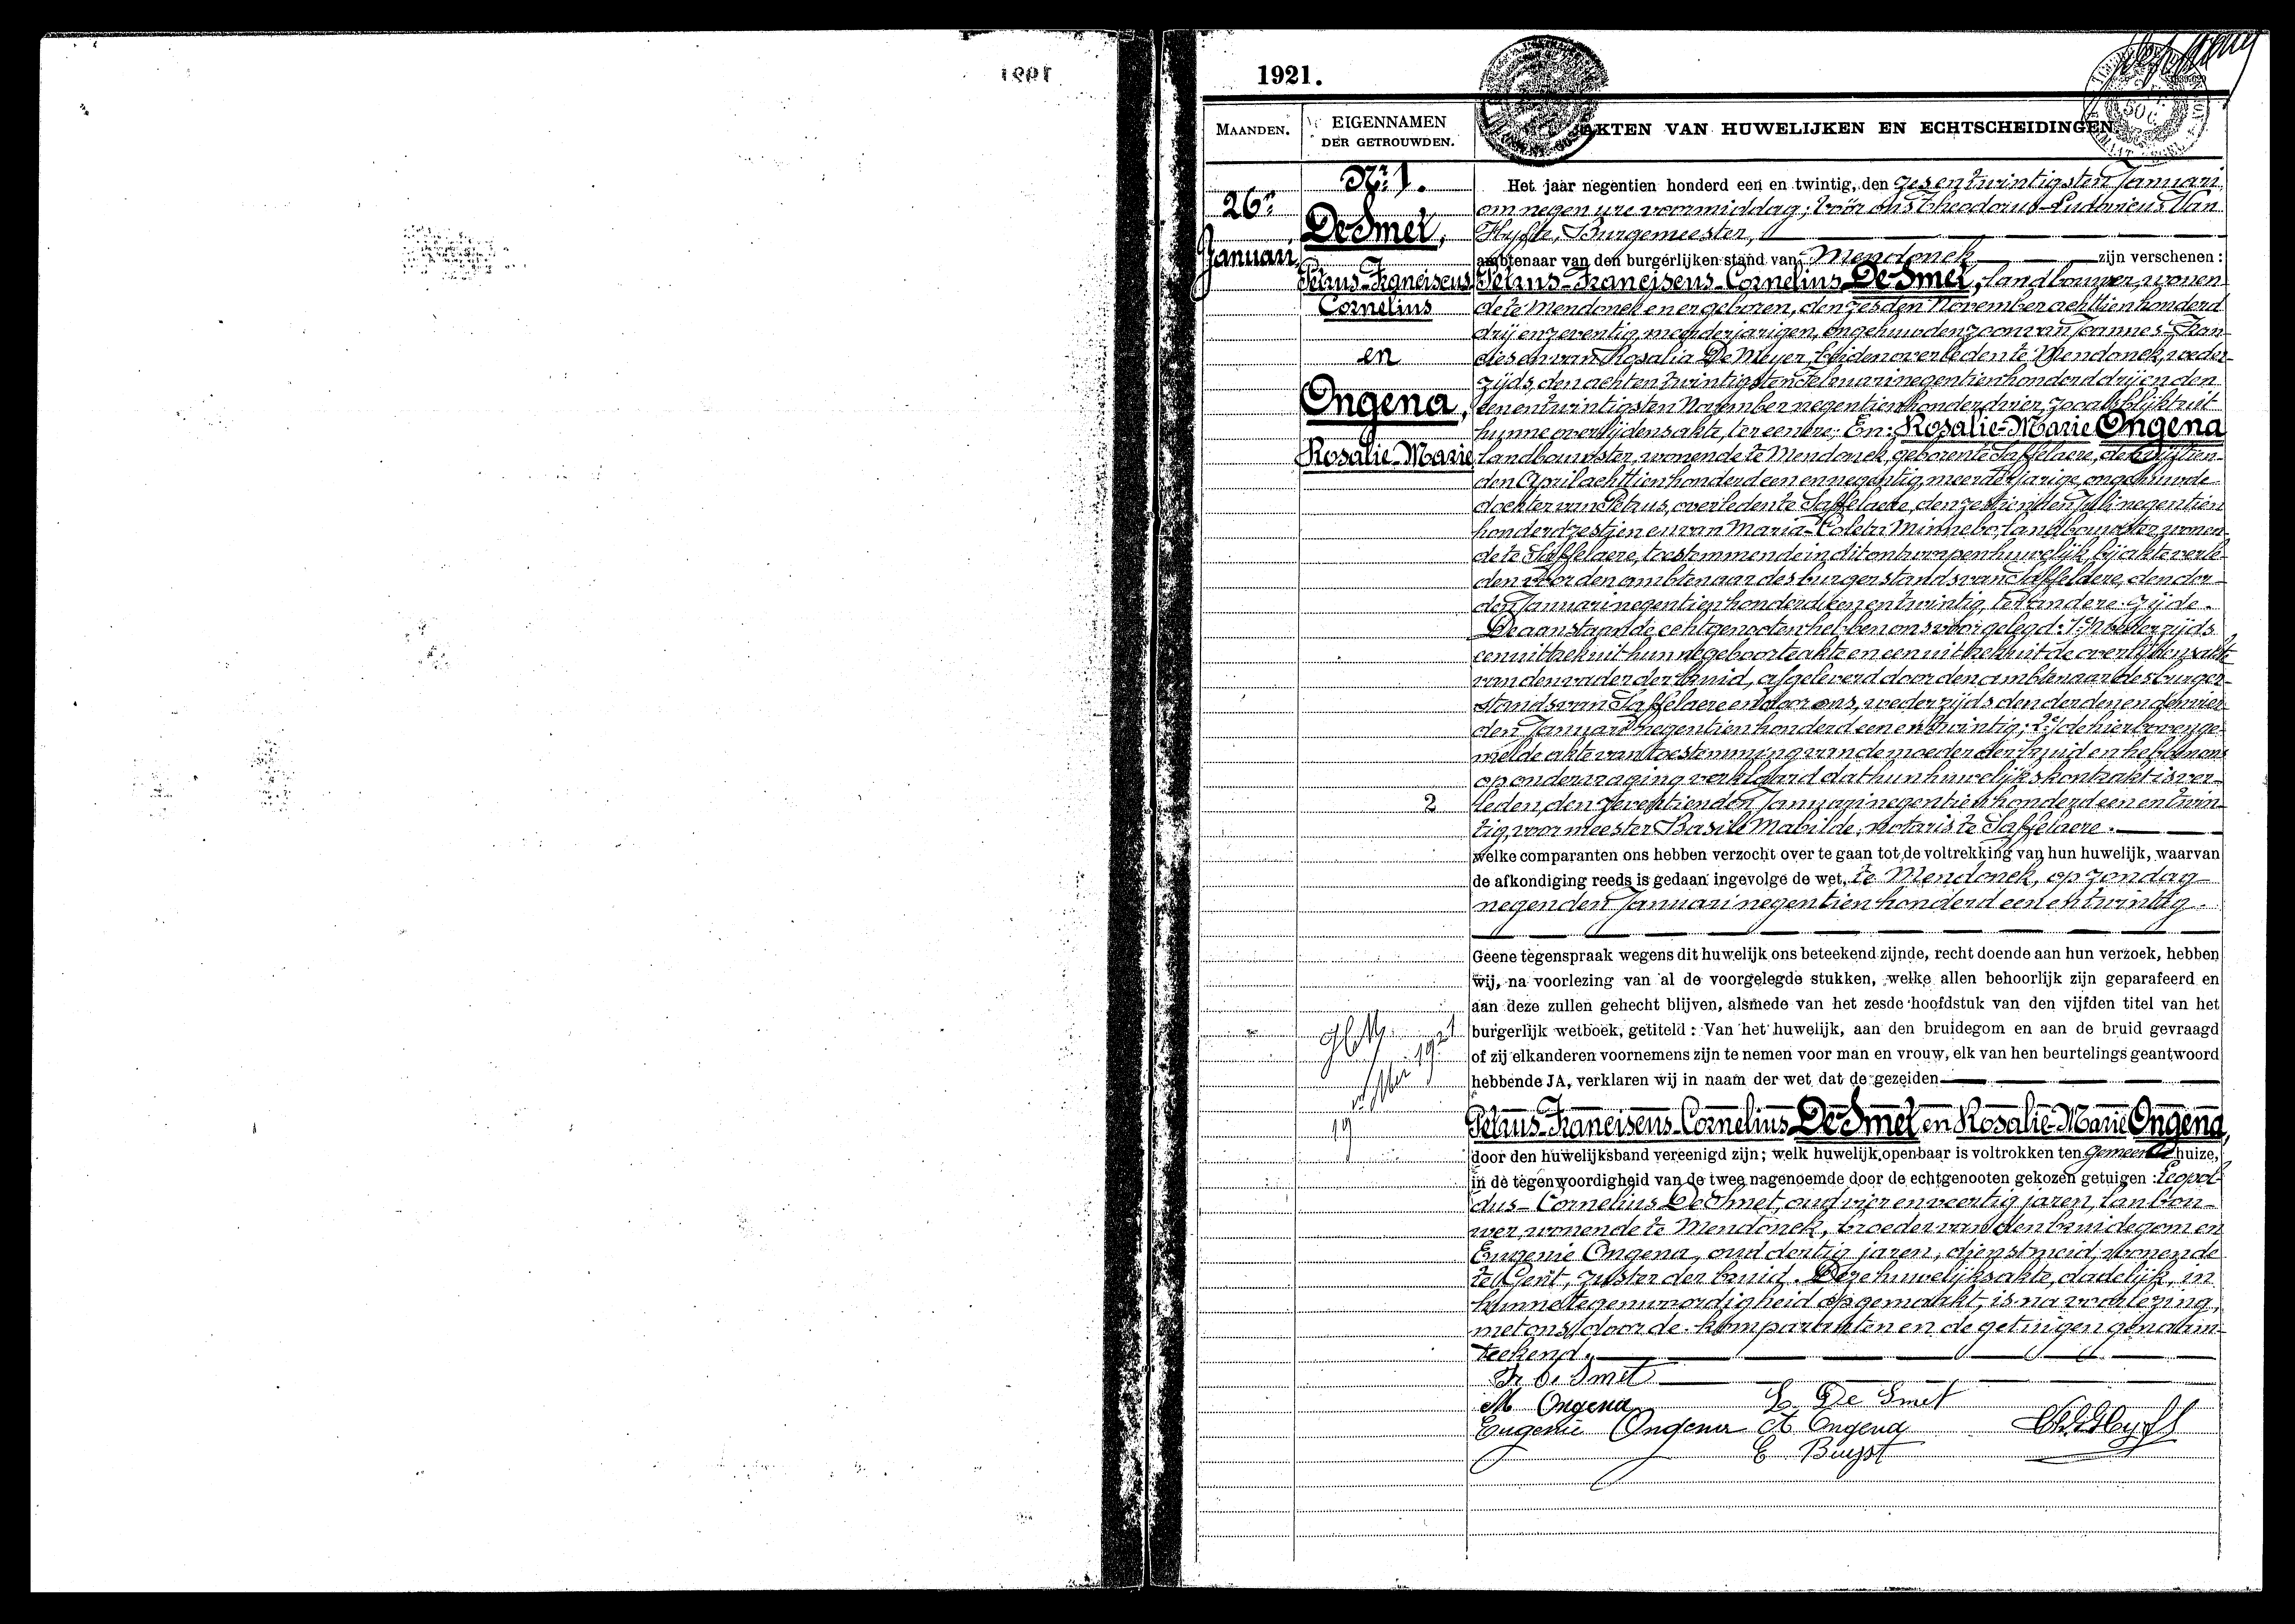 1921.
MAANDEN.
EIGENNAMEN
DER GETROUWDEN.
AKTEN VAN HUWELIJKEN EN ECHTSCHEIDINGEN
26n
Januari,
Nr. 1.
De Smet,
Petrus-Franciscus
Cornelius
en
Ongena,
Rosalie-Marie
2
Het jaar negentien honderd een en twintig, den zesentwintigsten Januari,
om negen ure voormiddag; vóór ons Theodorus-Ludovicus Van
Hyfte, Burgemeester,
ambtenaar van den burgerlijken stand van Mendonck zijn verschenen:
Petrus-Franciscus-Cornelius De Smet, landbouwer, wonen-
de te Mendonck en er geboren, den zesden November achttienhonderd
drij en zeventig, meerderjarigen, ongehuwden zoon van Joannes-Fran-
cies en van Rosalia De Meyer, beiden overleden te Mendonck, weder-
zijds, den achtentwintigsten Februari negentienhonderd drij en den
eenentwintigsten November negentienhonderd vier, zooals blijkt uit
hunne overlijdensakte, ter eenere; En: Rosalie-Marie Ongena
landbouwster, wonende te Mendonck, geboren te Saffelaere, den vijftien-
den April achttienhonderd een en negentig, meerderjarige, ongehuwde
dochter van Petrus, overleden te Saffelaere, den zestienden Juli negentien
honderd zestien en van Maria-Coleta Minnebo, landbouwster, wonen-
de te Saffelaere, toestemmende in dit ontworpen huwelijk, bij akte verle-
den voor den ambtenaar des burgerstands van Saffelaere, den der-
den Januari negentienhonderd een en twintig, ter andere zijde.
De aanstaande echtgenooten hebben ons voorgelegd: 1° wederzijds
een uittrek uit hunne geboorteakte en een uittrek uit de overlijdensakte
van den vader der bruid, afgeleverd door den ambtenaar des burger-
stands van Saffelaere en door ons, wederzijds den derden en den vier-
den Januari negentienhonderd een en twintig; 2° de hierbovenge-
melde akte van toestemming van de moeder der bruid en hebben ons
op ondervraging verklaard dat hun huwelijkskontrakt is ver-
leden, den zeventienden Januari negentienhonderd een en twin-
tig, voor meester Basile Mabilde, notaris te Saffelaere.
welke comparanten ons hebben verzocht over te gaan tot de voltrekking van hun huwelijk, waarvan
de afkondiging reeds is gedaan ingevolge de wet, te Mendonck, op zondag
negenden Januari negentienhonderd een en twintig.
Geene tegenspraak wegens dit huwelijk ons beteekend zijnde, recht doende aan hun verzoek, hebben
wij, na voorlezing van al de voorgelegde stukken, welke allen behoorlijk zijn geparafeerd en
aan deze zullen gehecht blijven, alsmede van het zesde hoofdstuk van den vijfden titel van het
burgerlijk wetboek, getiteld: Van het huwelijk, aan den bruidegom en aan de bruid gevraagd
of zij elkanderen voornemens zijn te nemen voor man en vrouw, elk van hen beurtelings geantwoord
hebbende JA, verklaren wij in naam der wet dat de gezeiden
Petrus-Franciscus-Cornelius De Smet en Rosalie-Marie Ongena,
door den huwelijksband vereenigd zijn; welk huwelijk openbaar is voltrokken ten gemeentehuize,
in de tegenwoordigheid van de twee nagenoemde door de echtgenooten gekozen getuigen: Leopol-
dus-Cornelius De Smet, oud vier en veertig jaren, lanbou-
wer, wonende te Mendonck, broeder van den bruidegom en
Eugenie Ongena, oud dertig jaren, dienstmeid, wonende
te Gent, zuster der bruid. Deze huwelijksakte, dadelijk, in
hunne tegenwoordigheid opgemaakt, is na voorlezing,
met ons door de komparanten en de getuigen genaam-
teekend.
Fr De Smet
M Ongena L De Smet
Eugenie Ongena A Ongena
E Buyst